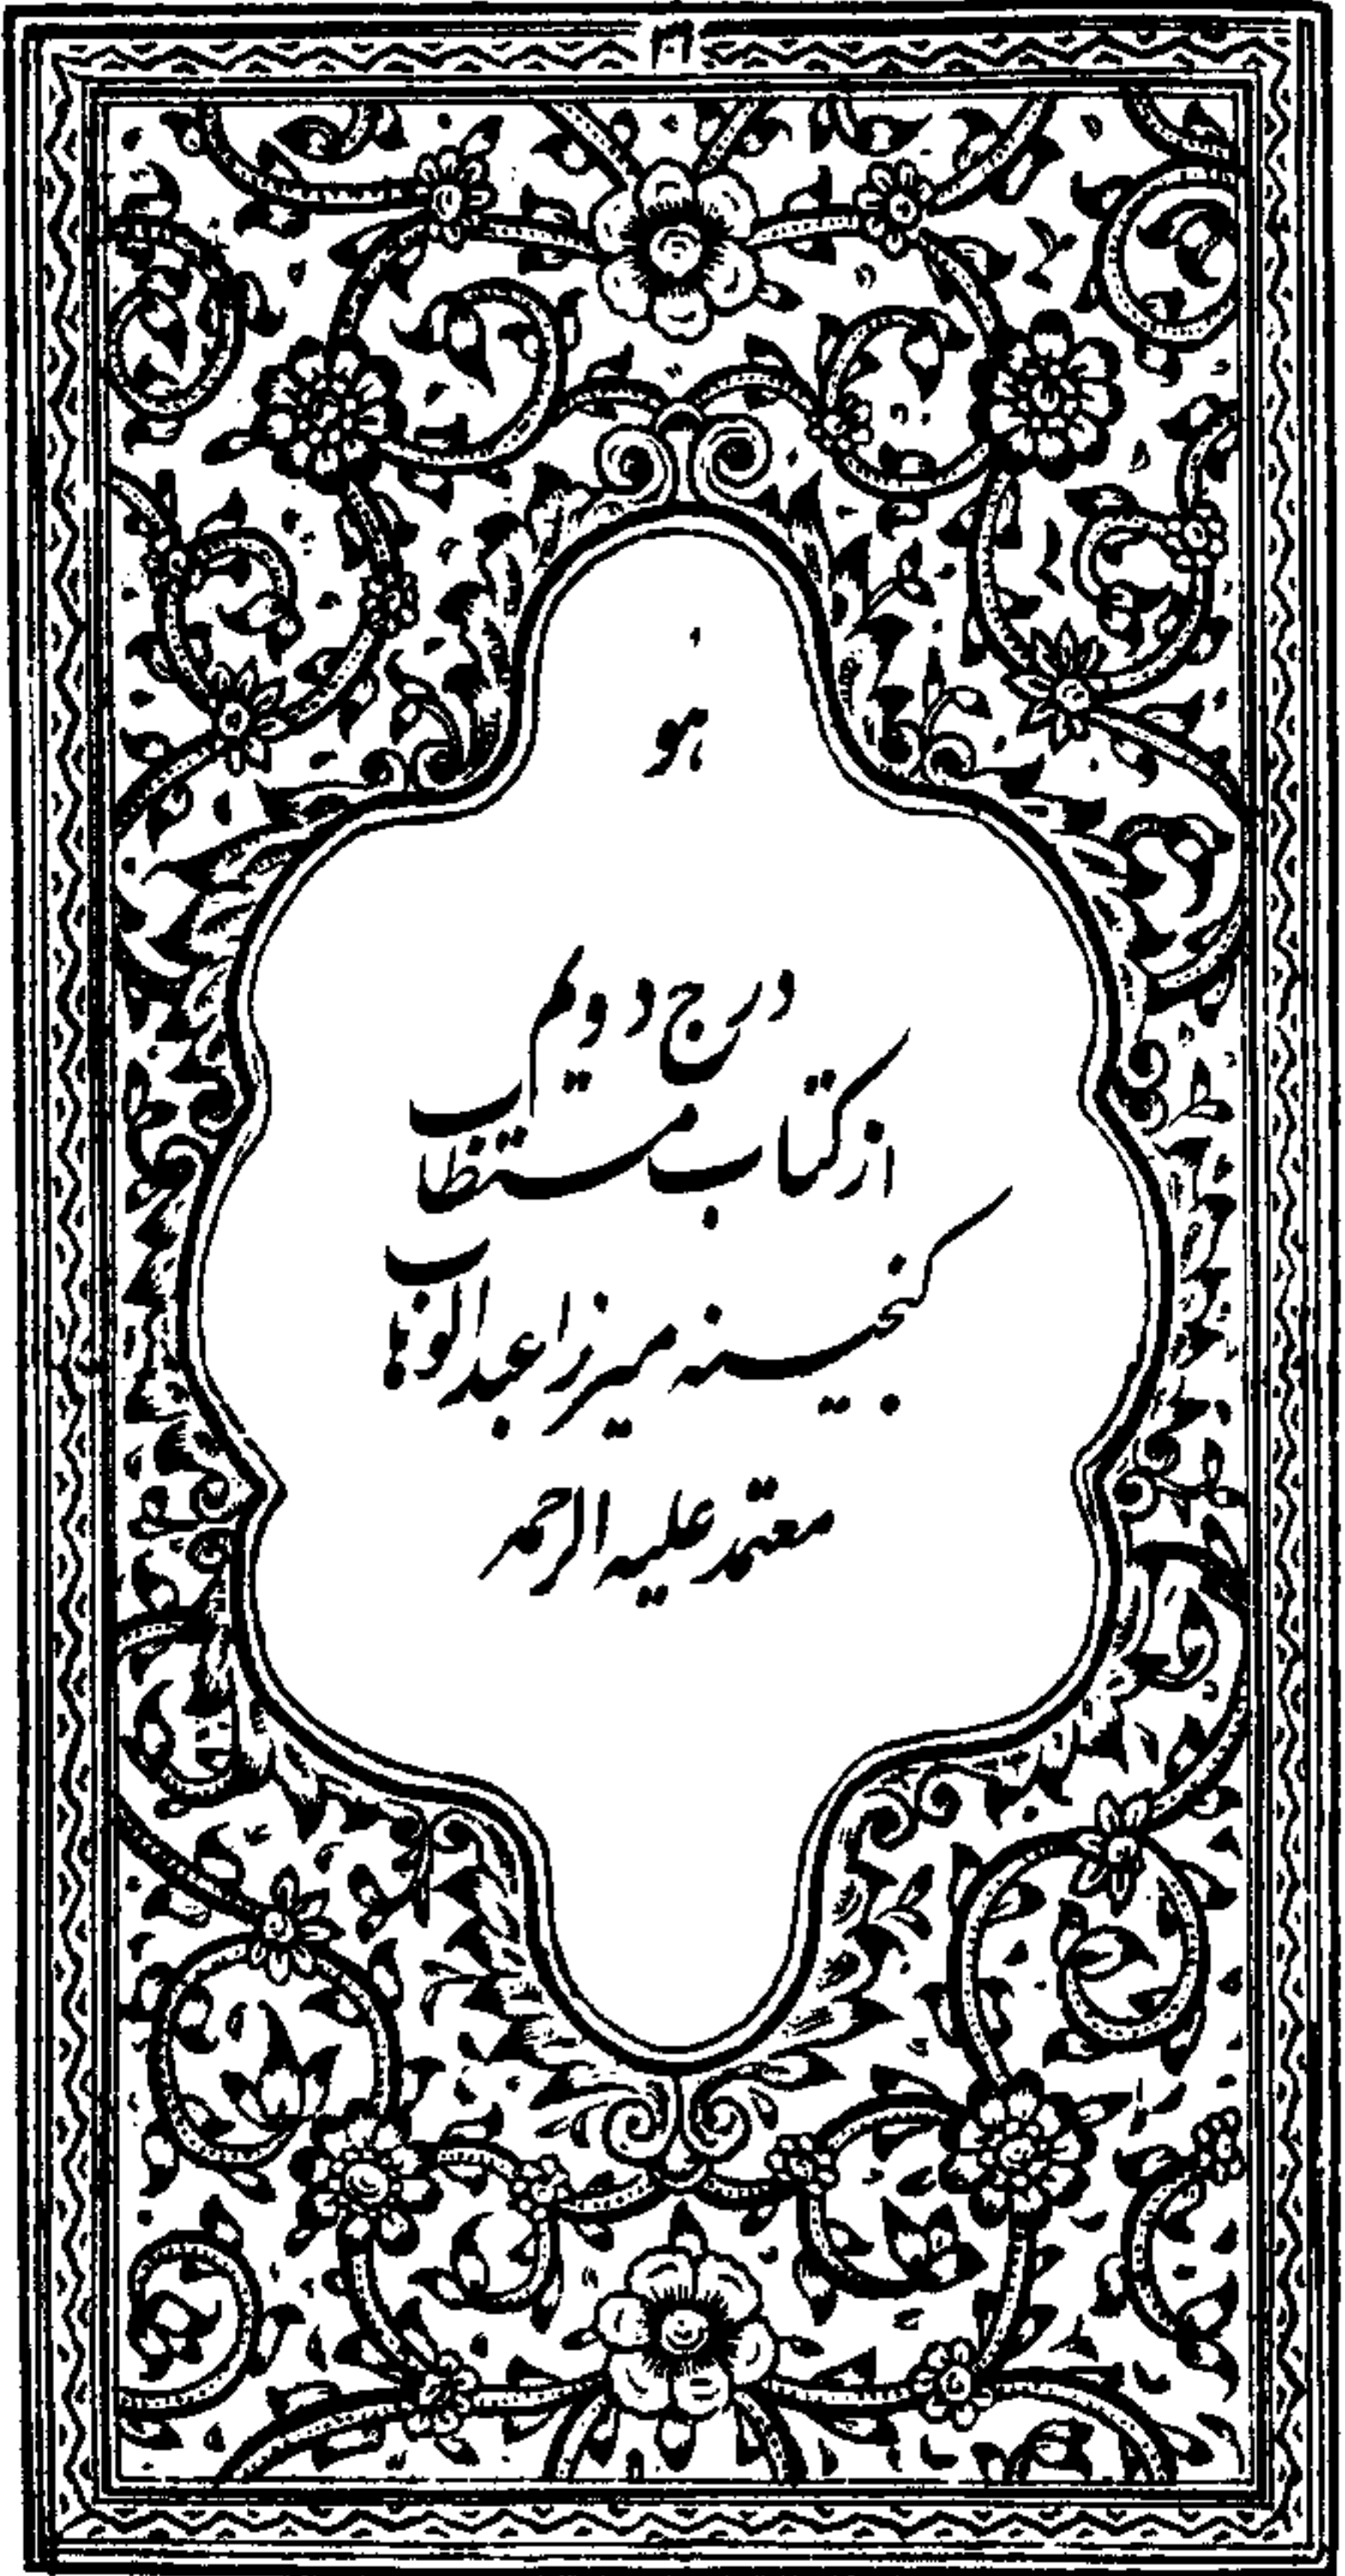 هو
درج دویم
از کتاب مستطاب
گنجینه میرزا عبدالوهاب
معتمد علیه الرحمه